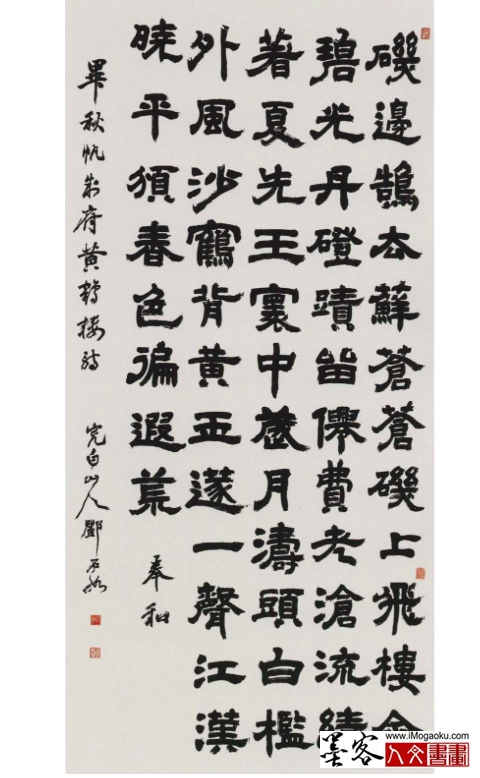 磯邊鵠去蘚蒼蒼磯上飛樓金
碧光丹磴蹟畱僊費老滄流績
著夏先王寰中歲月濤頭白檻
外風沙鶴背黃玉篴一聲江漢
曉平頒春色徧遐荒
奉和
畢秋帆制府黃鶴樓詩
完白山人鄧石如
墨客
www.iMogaoku.com
人文書畫